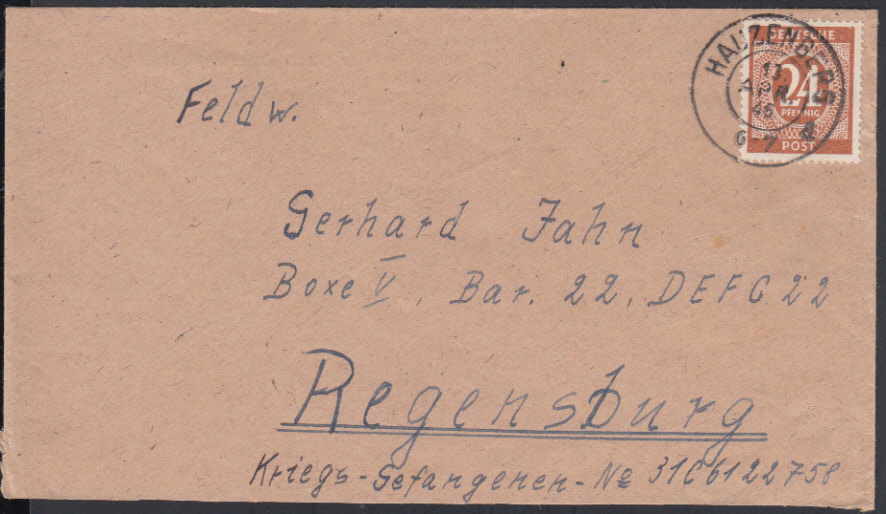 HAUZENBERG
13
APR
46
6-7
DEUTSCHE
24
PFENNIG
POST
Feldw.
Gerhard Jahn
Boxe V, Bar. 22, DEFC 22
Regensburg
Kriegs-Gefangenen-No 31C6122758